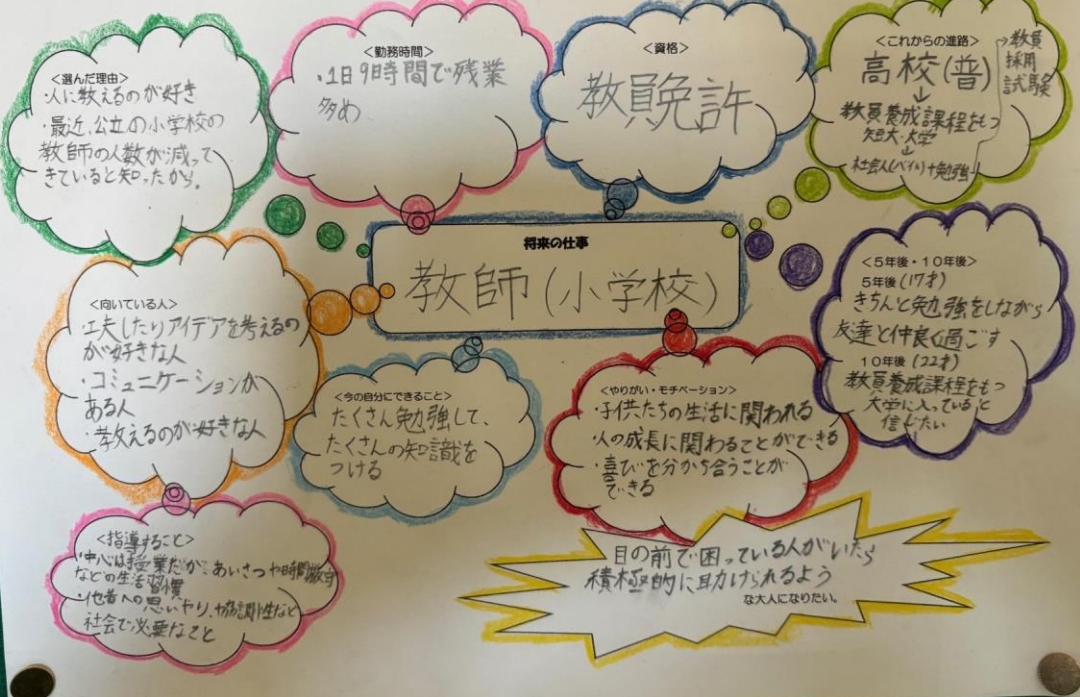 <選んだ理由>
・人に教えるのが好き
・最近、公立の小学校の
教師の人数が減って
きていると知ったから。
<勤務時間>
・1日9時間で残業
多め
<資格>
教員免許
<これからの進路>
高校(普)
↓
教員養成課程をもつ
短大・大学
↓
社会人(バイト)+勉強
→教員
採用
試験
将来の仕事
教師(小学校)
<向いている人>
・工夫したりアイデアを考えるの
が好きな人
・コミュニケーションが
ある人
・教えるのが好きな人
<今の自分にできること>
たくさん勉強して、
たくさんの知識を
つける
<やりがい・モチベーション>
・子供たちの生活に関われる
・人の成長に関わることができる
・喜びを分かち合うことが
できる
<5年後・10年後>
5年後(17才)
きちんと勉強をしながら
友達と仲良く過ごす
10年後(22才)
教員養成課程をもつ
大学に入っていると
信じたい
<指導すること>
・中心は授業だが、あいさつや時間厳守
などの生活習慣
・他者への思いやり、協調性など
社会で必要なこと
目の前で困っている人がいたら
積極的に助けられるよう
な大人になりたい。